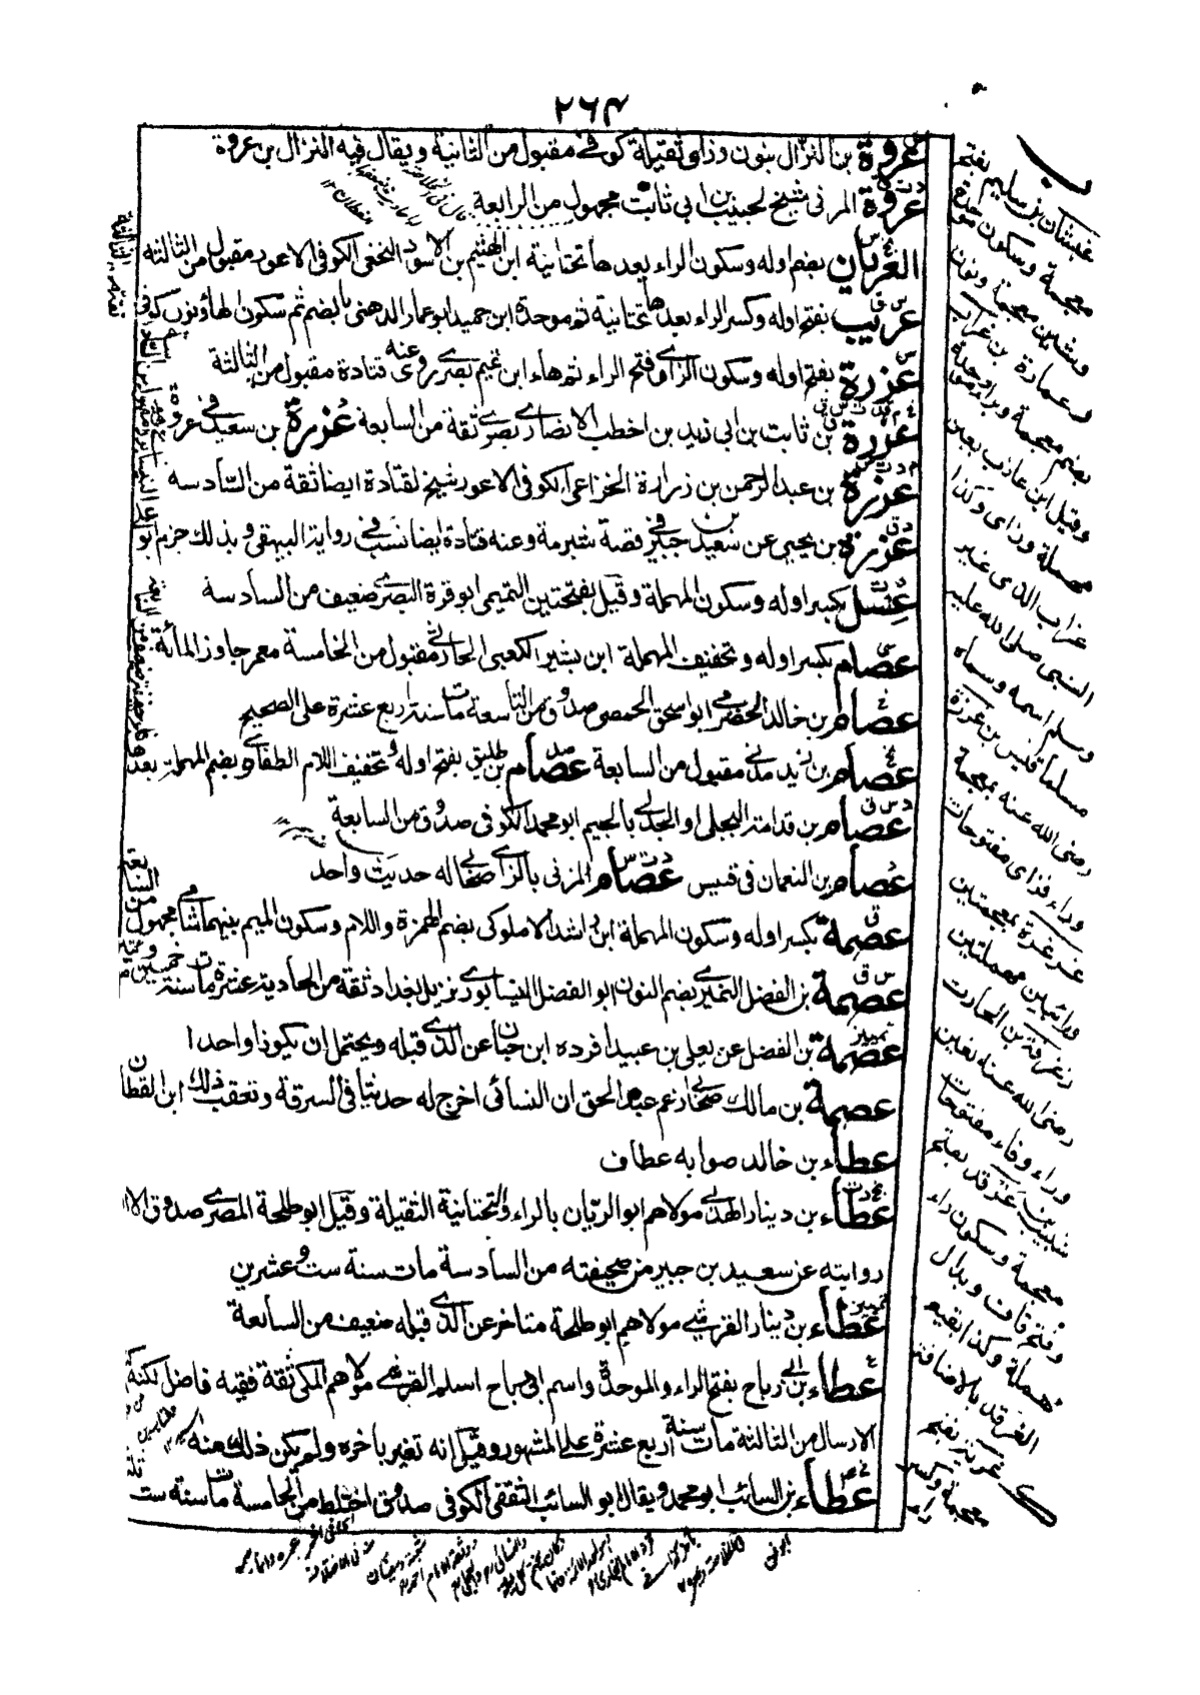 ۲۶۴
عروة بن النزال بنون وزاي ثقيلة كوفي مقبول من الثانية ويقال فيه النزال بن عروة
عروة المزني شيخ لحبيب بن ابي ثابت مجهول من الرابعة
العريان بضم اوله وسكون الراء بعدها تحتانية ابن الهيثم بن الاسود النخعي الكوفي الاعور مقبول من الثالثة
عريب بفتح اوله وكسر الراء بعدها تحتانية ثم موحدة ابن حميد ابو عمار الدهني بالضم ثم سكون الهاء ونون كوفي
عزرة بفتح اوله وسكون الزاي وفتح الراء ثم هاء ابن تميم بصري روى عنه قتادة مقبول من الثالثة
عزرة بن ثابت بن ابي زيد بن اخطب الانصاري بصري ثقة من السابعة عزرة بن سعيد في عروة
عزرة بن عبد الرحمن بن زرارة الخزاعي الكوفي الاعور شيخ لقتادة ايضا ثقة من السادسة
عزرة بن يحيى عن سعيد بن جبير في قصة شبرمة وعنه قتادة ايضا نسب في رواية البيهقي وبذلك جزم ابو
عسل بكسر اوله وسكون المهملة وقيل بفتحتين التميمي ابو قرة البصري ضعيف من السادسة
عصام بكسر اوله وتخفيف المهملة ابن بشير الكعبي الحارثي مقبول من الخامسة معمر جاوز المائة
عصام بن خالد الحضرمي ابو اسحق الحمصي صدوق من التاسعة مات سنة اربع عشرة على الصحيح
عصام بن زيد مدني مقبول من السابعة عصام بن طليق بفتح اوله وتخفيف اللام الطفاوي بضم المهملة بعدها
عصام بن قدامة البجلي او الجدلي بالجيم ابو محمد الكوفي صدوق من السابعة
عصام بن النعمان في قيس عصام المزني بالزاي صحابي له حديث واحد
عصمة بكسر اوله وسكون المهملة ابن راشد الاملوكي بضم الهمزة واللام وسكون الميم بينهما شامي مجهول من السابعة
عصمة بن الفضل النميري بضم النون ابو الفضل النيسابوري نزيل بغداد ثقة من الحادية عشرة مات سنة خمسين
عصمة بن الفضل عن يعلى بن عبيد افرده ابن حبان عن الذي قبله ويحتمل ان يكونا واحدا
عصمة بن مالك صحابي زعم عبد الحق ان النسائي اخرج له حديثا في السرقة وتعقب ذلك ابن القطان
عطاء بن خالد صوابه عطاف
عطاء بن دينار الهذلي مولاهم ابو الريان بالراء والتحتانية الثقيلة وقيل ابو طلحة المصري صدوق الا ان
روايته عن سعيد بن جبير من صحيفته من السادسة مات سنة ست وعشرين
عطاء بن دينار القرشي مولاهم ابو طلحة متاخر عن الذي قبله ضعيف من السابعة
عطاء بن ابي رباح بفتح الراء والموحدة واسم ابي رباح اسلم القرشي مولاهم المكي ثقة فقيه فاضل لكنه
الارسال من الثالثة مات سنة اربع عشرة على المشهور وقيل انه تغير باخره ولم يكن ذلك منه
عطاء بن السائب ابو محمد ويقال ابو السائب الثقفي الكوفي صدوق اختلط من الخامسة مات سنة ست
غبشان بن سليم بفتح
معجمة وسكون موحدة
وشين معجمة ونون
وعمارة بن غراب
بضم معجمة وبراء وموحدة
وقيل ابن عازب بعين
مهملة وزاي وكذا
عزاب الذي غير
النبي صلى الله عليه
وسلم اسمه وسماه
مسلما قيس بن غرزة
رضي الله عنه بمعجمة
وراء فزاي مفتوحات
غرغرة بمعجمتين
ورائين مهملتين
وغرفة بن الحارث
رضي الله عنه بغين
وراء وفاء مفتوحات
شبيب بن غرقد بفتح
معجمة وسكون راء
وفتح قاف وبدال
مهملة وكذا بقيع
الغرقد بالاضافة
غرير بفتح
معجمة وكسر
راء